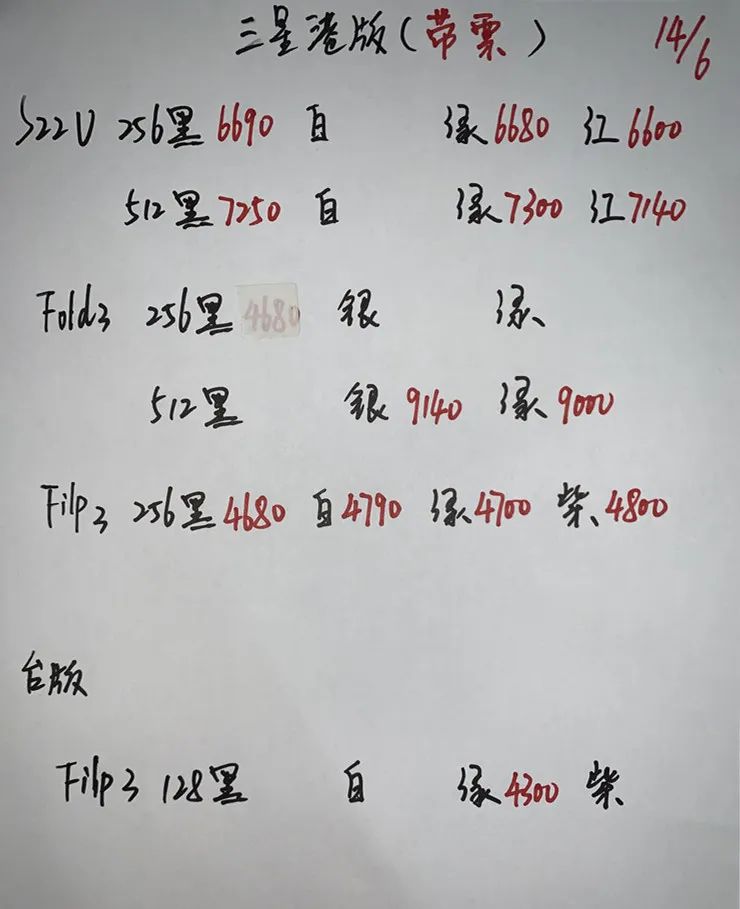 三星港版(带票) 14/6
S22U 256黑6690 白 绿6680 红6600
512黑7250 白 绿7300 红7140
Fold3 256黑 4680 银 绿
512黑 银9140 绿9000
Filp3 256黑4680 白4790 绿4700 紫4800
台版
Filp3 128黑 白 绿4300 紫